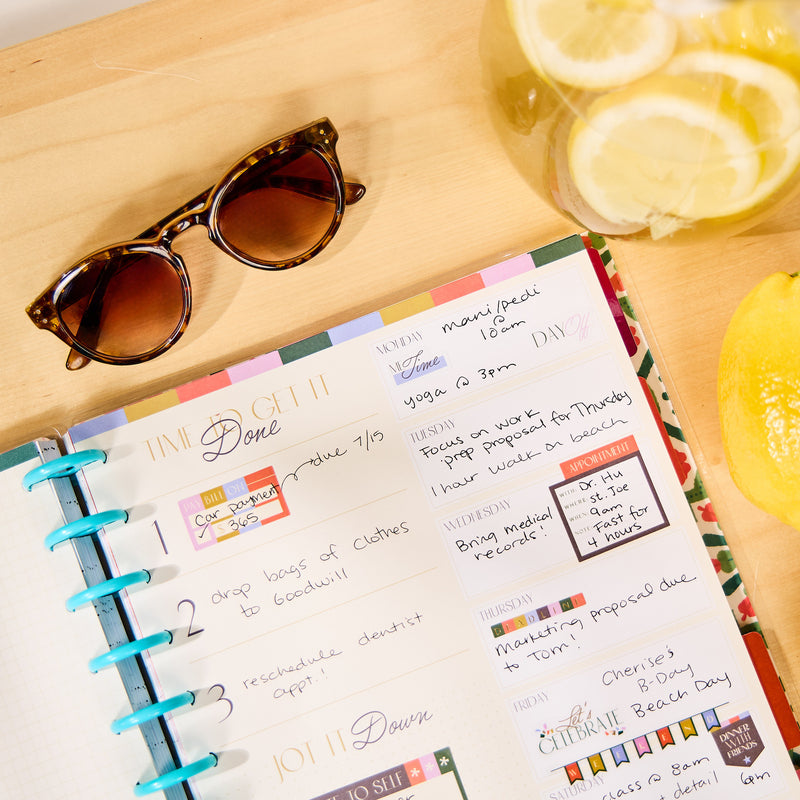 TIME TO GET IT
Done
due 7/15
PAY BILL OF
Car payment
✓ $365
1
2
drop bags of clothes
to Goodwill
3
reschedule dentist
appt.!
JOT IT Down
TE TO SELF
MONDAY
mani/pedi
@
10am
DAY Off
ME Time
yoga @ 3pm
TUESDAY
Focus on work
prep proposal for Thursday
1 hour walk on beach
WEDNESDAY
Bring medical
records!
APPOINTMENT
WITH: Dr. Hu
WHERE: St. Joe
WHEN: 9am
NOTE: Fast for
4 hours
THURSDAY
DEADLINE
Marketing proposal due
to Tom!
FRIDAY
Cherise's
B-Day
Beach Day
Let's
CELEBRATE
WEEKEND
DINNER
WITH
FRIENDS
6pm
SATURDAY
class @ 8am
detail